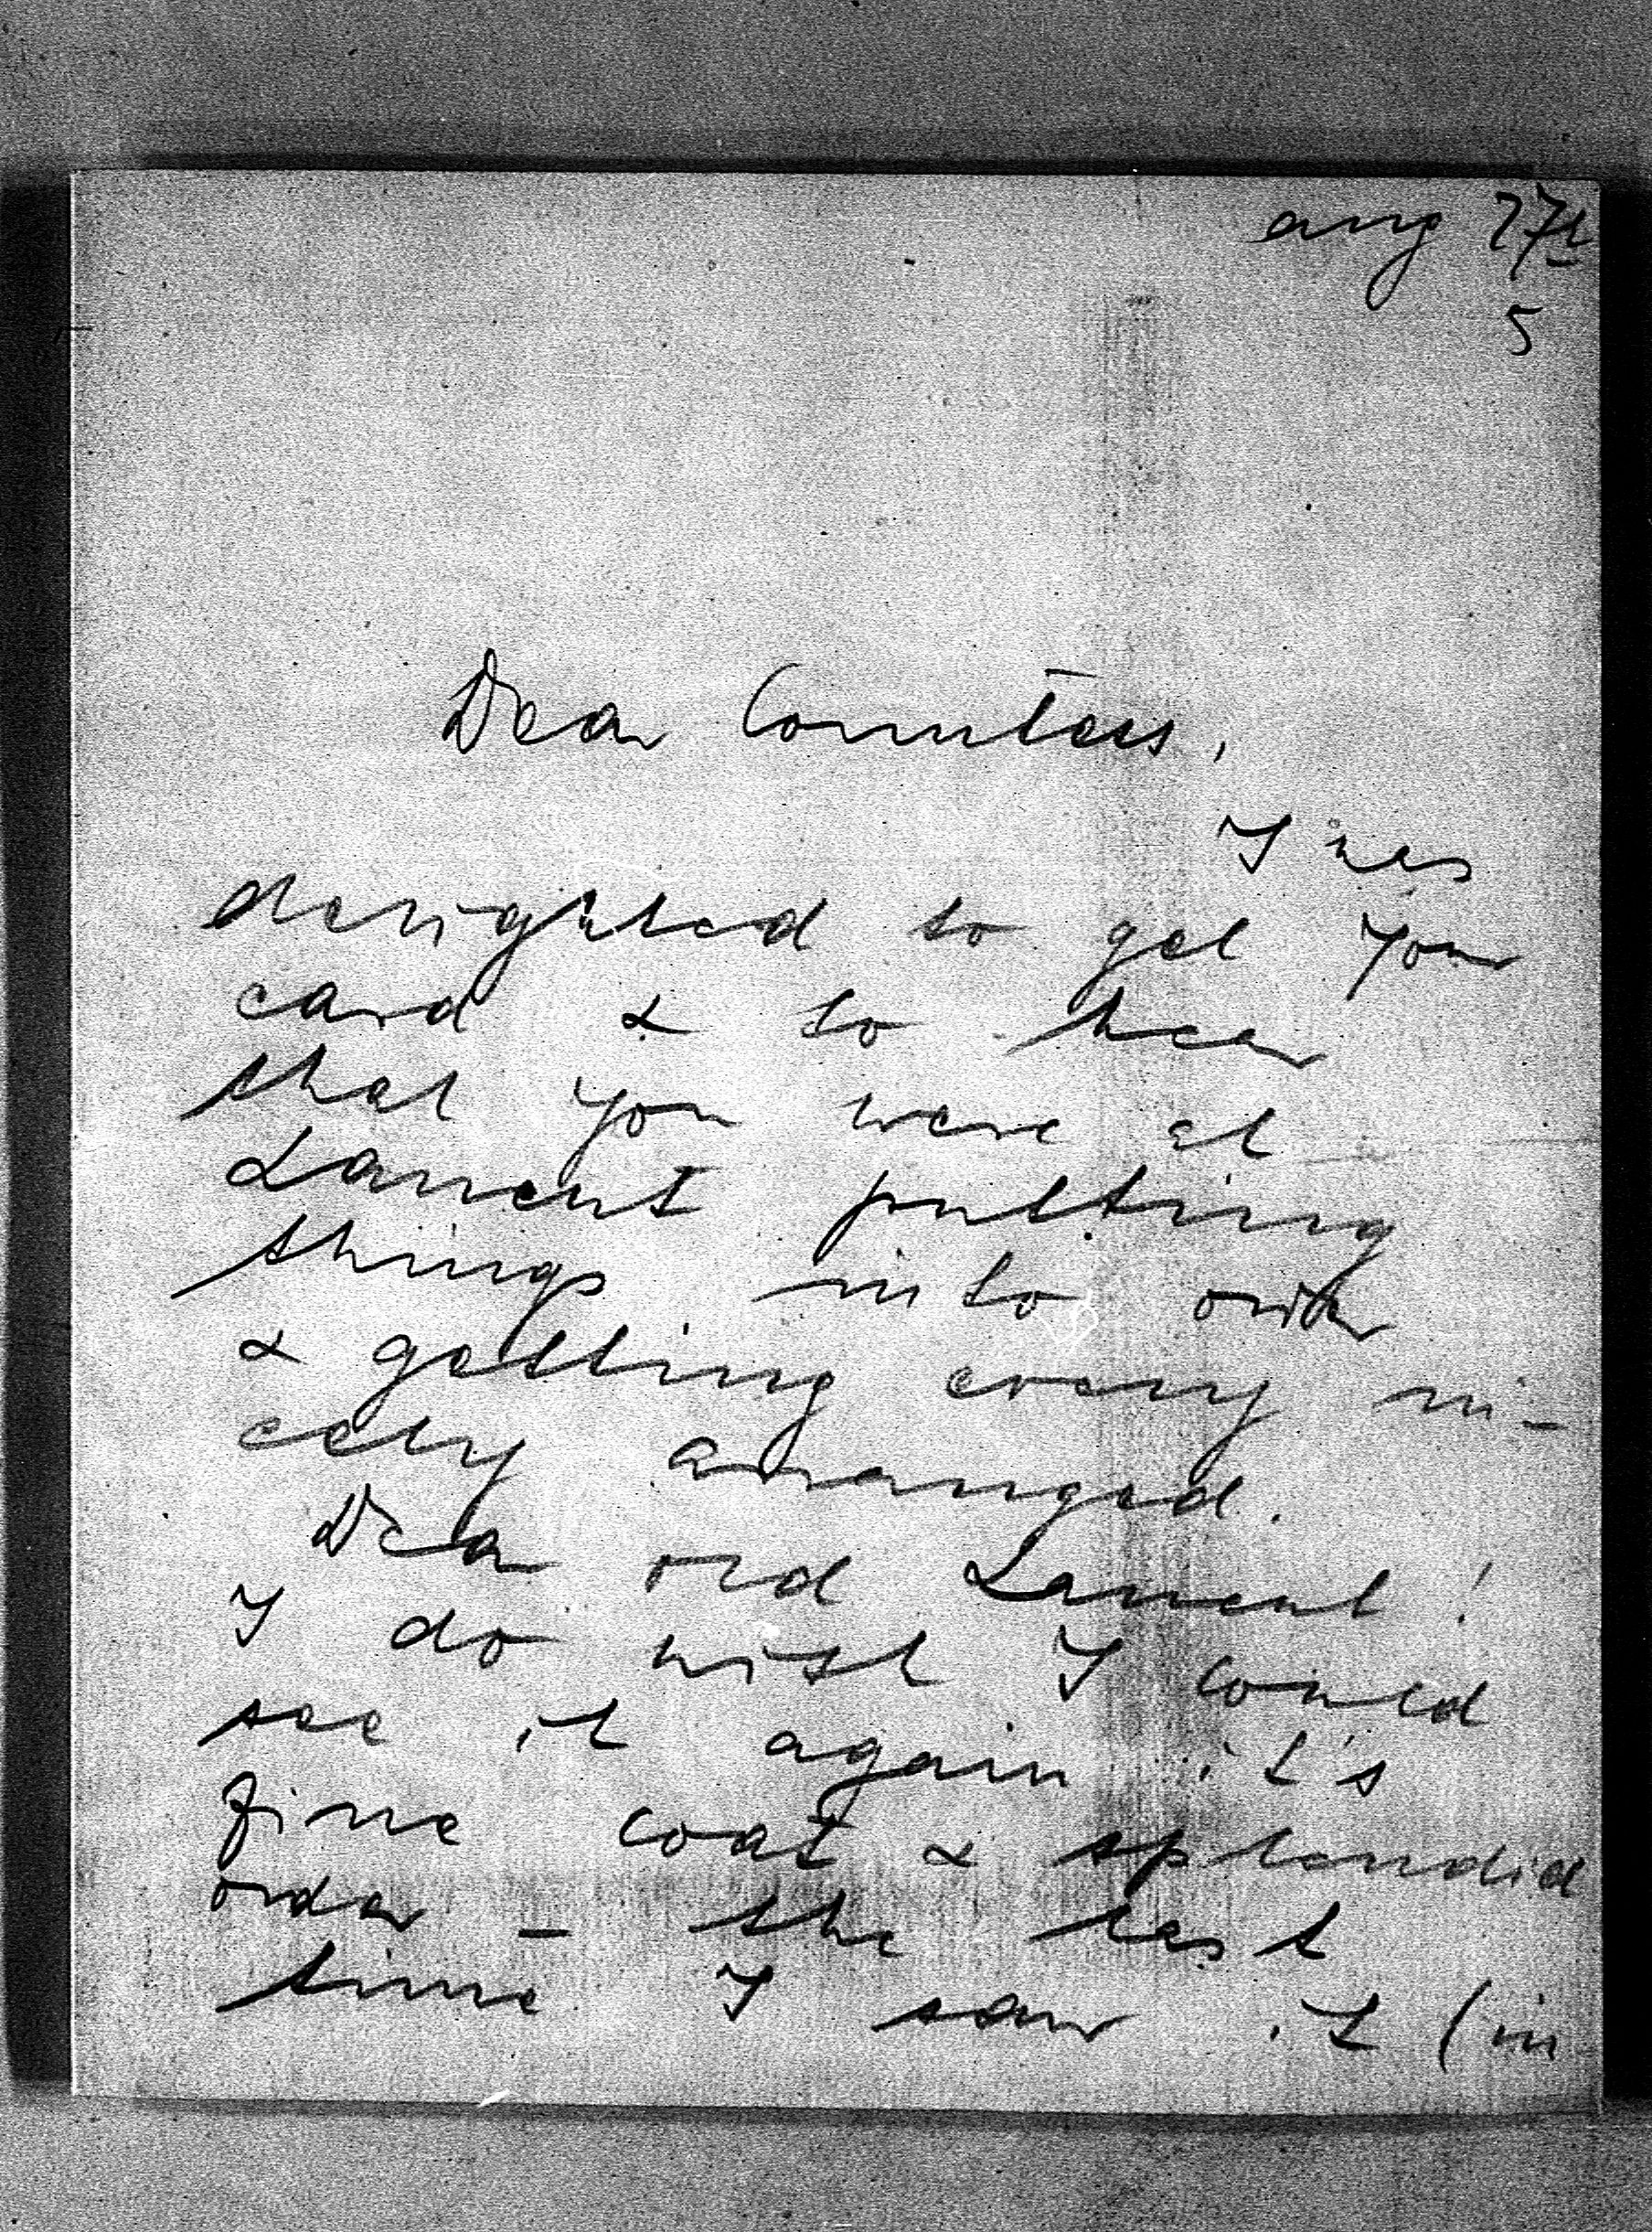 Aug 27th
5
Dear Countess,
I was
delighted to get your
card & to hear
that you were at
Lancut putting
things into order
& getting every ni-
cely arranged.
Dear old Lancut!
I do wish I could
see it again it's
fine coat & splendid
order – the last
time I saw it (in